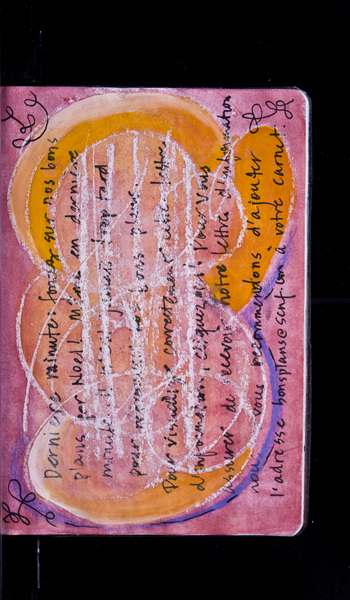 Dernière minute: foncez sur nos bons
plans por Noël! Même en dernière
minute il n'est jamais trop tard
pour recevoir nos bons plans.
Pour visualiser correctement cette lettre
d'information, cliquez ici! Pour vous
assurer de recevoir notre lettre d'information
nous vous recommendons d'ajouter
l'adresse bonsplans@scnf.com à votre carnet.